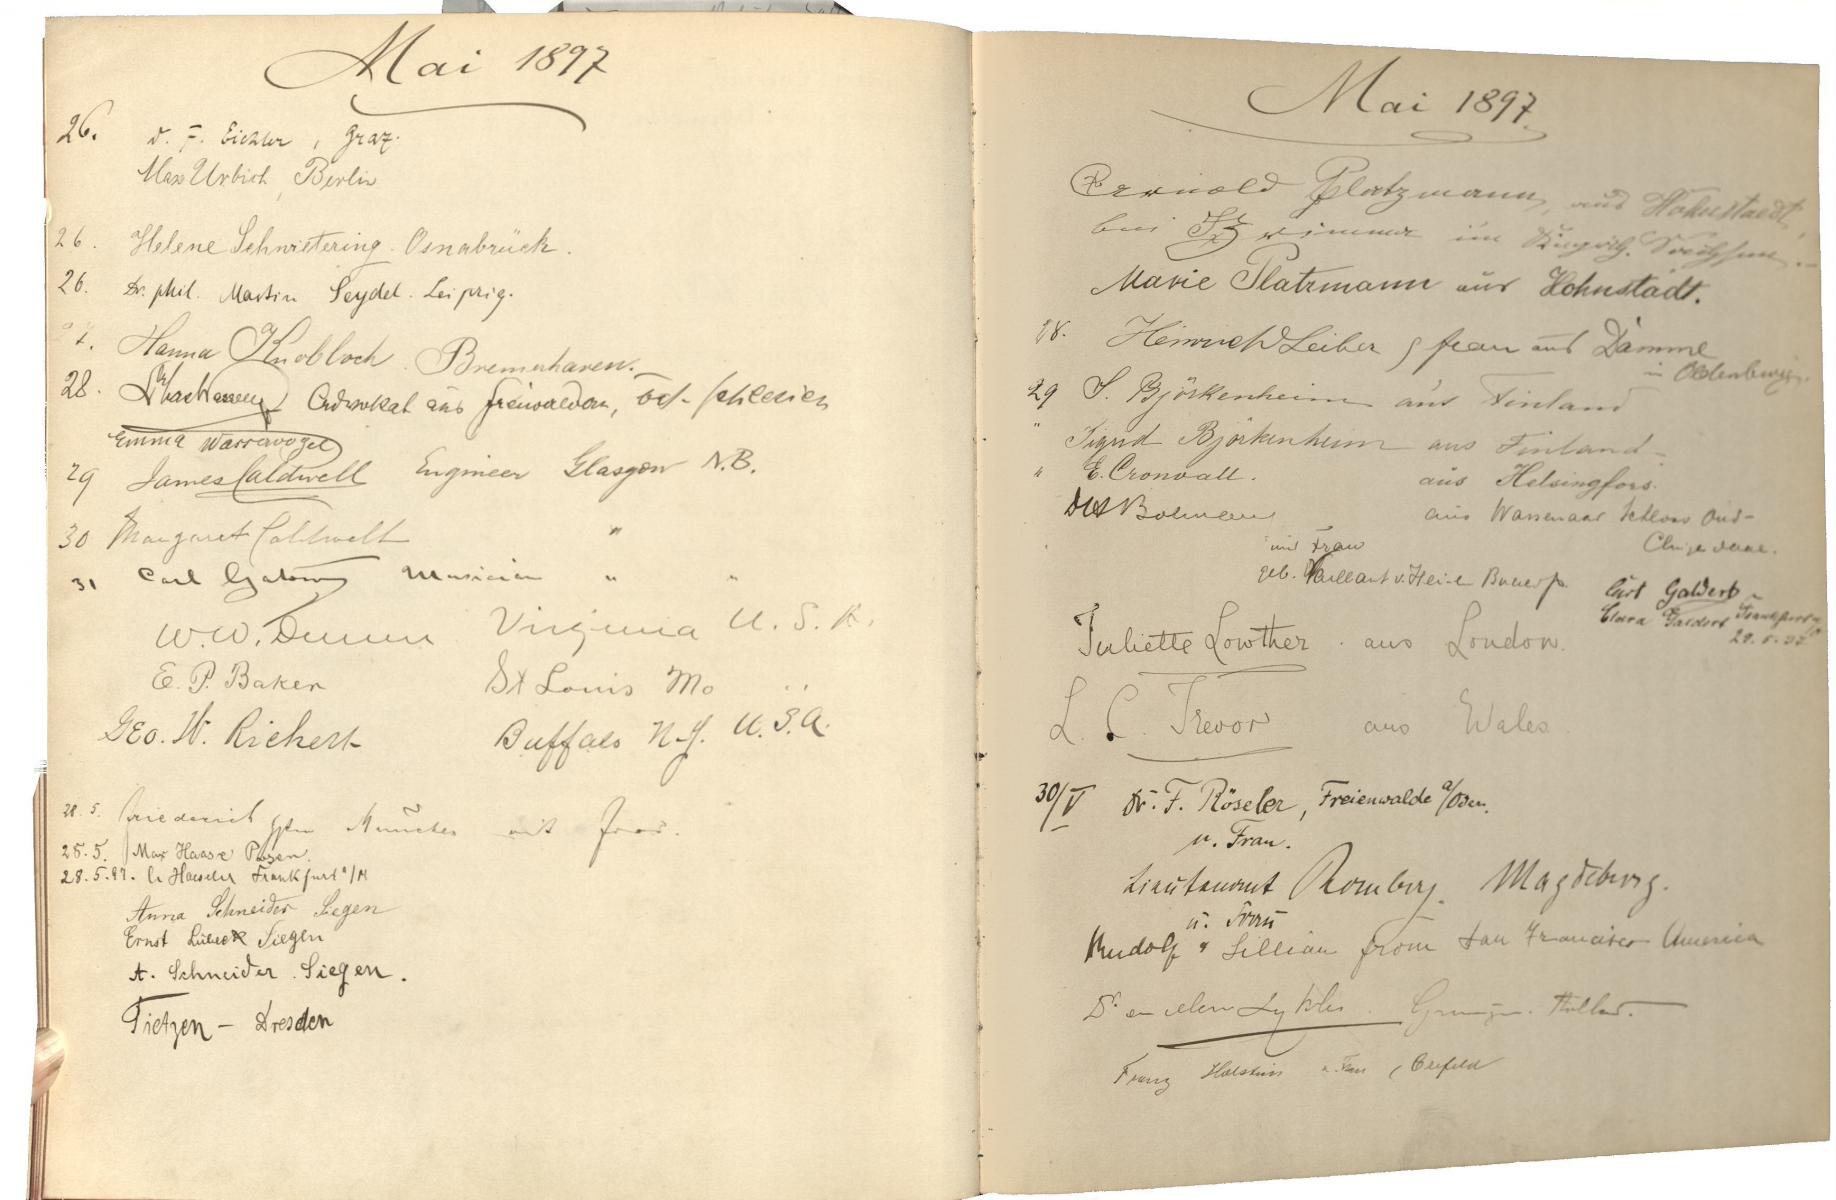 Mai 1897
26. Dr. F. Eichler, Graz.
Max Urbich, Berlin
26. Helene Schwietering. Osnabrück.
26. Dr. phil. Martin Seydel. Leipzig.
Hanna Knobloch. Bremerhaven.
28. Advokat aus Freiwaldau, öst. Schlesien
Emma Wasservogel
29 James Caldwell Engineer Glasgow N.B.
30 Margaret Caldwell "
31 Carl Musician " "
W. W. Virginia U. S. A.
E. P. Baker St Louis Mo "
Geo. W. Rickert Buffalo N.Y. U.S.A.
28. 5. Friederich München mit Frau.
25. 5. Max Haase Posen.
28. 5. 97. Haeseler Frankfurt a/M
Anna Schneider Siegen
Ernst Lübeck Siegen
A. Schneider. Siegen.
Tietzen – Dresden
Mai 1897
Platzmann, aus Hohnstaedt,
bei Grimma im Königr. Sachsen.
Marie Platzmann aus Hohnstädt.
28. Heinrich Leiber & frau aus Damme
in Oldenburg.
29 S. Björkenheim aus Finland
" Sigrid Björkenheim aus Finland
" E. Cronvall. aus Helsingfors.
aus Wassenaar Schloss Oud-
Clingendaal.
mit Frau
geb. Vaillant v.
Curt Galdert
Clara Galdert Frankfurt
Juliette Lowther. aus London.
L. C. Trevor aus Wales.
30/V Dr. F. Röseler, Freienwalde a/Oder.
u. Frau.
Lieutenant Romberg. Magdeburg.
u. Frau
Rudolf & Lillian from San Francisco America
Holland.
Franz Holstein u. Frau, Crefeld